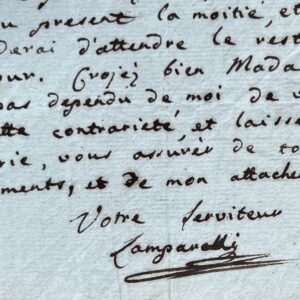 u present la moitié, et
derai d'attendre le rest
our. Crojéj bien Mada
pas dependu de moi de v
tte contrarieté, et laisse
rie, vous assurér de to
ments, et de mon attache
Votre Serviteur
Lamparelli